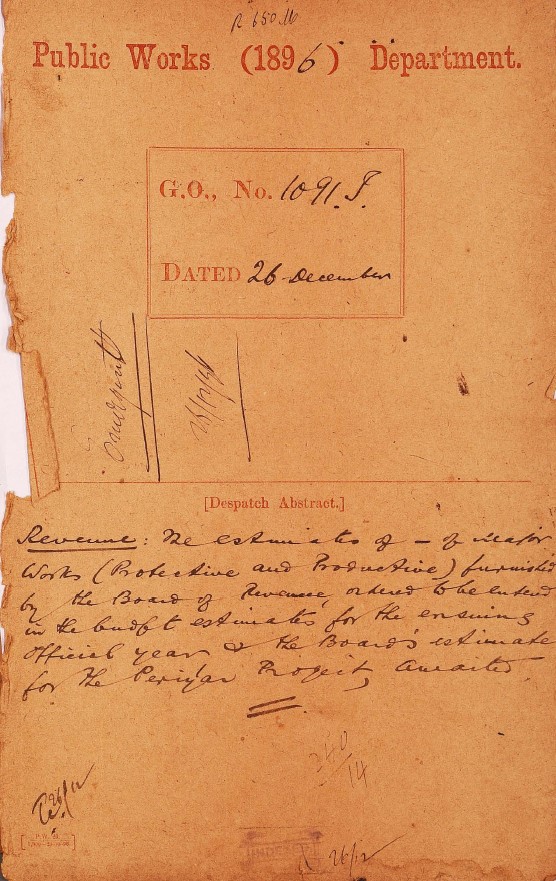 R 650.16
Public Works (1896) Department.
G.O., No. 1091. I.
DATED 26 December
[Despatch Abstract.]
Revenue: The estimates of – of Major
Works (Protective and Productive) furnished
by the Board of Revenue, ordered to be entered
in the budget estimates for the ensuing
official year & the Board's estimate
for the Periyar Project, awaited.
240
14
26/12
26/12